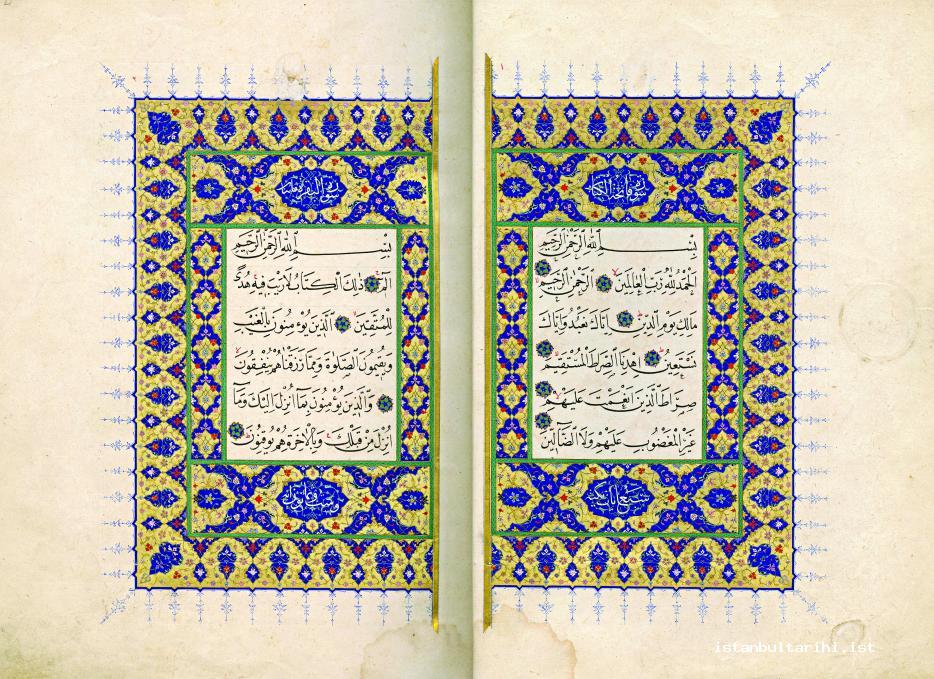 سورة فاتحة الكتاب
بسم الله الرحمن الرحيم
الحمد لله رب العالمين الرحمن الرحيم
مالك يوم الدين اياك نعبد واياك
نستعين اهدنا الصراط المستقيم
صراط الذين انعمت عليهم
غير المغضوب عليهم ولا الضالين
سبع ايات
سورة البقرة مائتان
بسم الله الرحمن الرحيم
الم ذلك الكتاب لا ريب فيه هدى
للمتقين الذين يؤمنون بالغيب
ويقيمون الصلوة ومما رزقناهم ينفقون
والذين يؤمنون بما انزل اليك وما
انزل من قبلك وبالاخرة هم يوقنون
istanbultarihi.ist